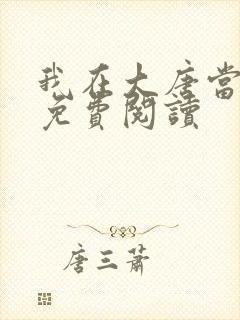 我在大唐當
免費閱讀
唐三蕭